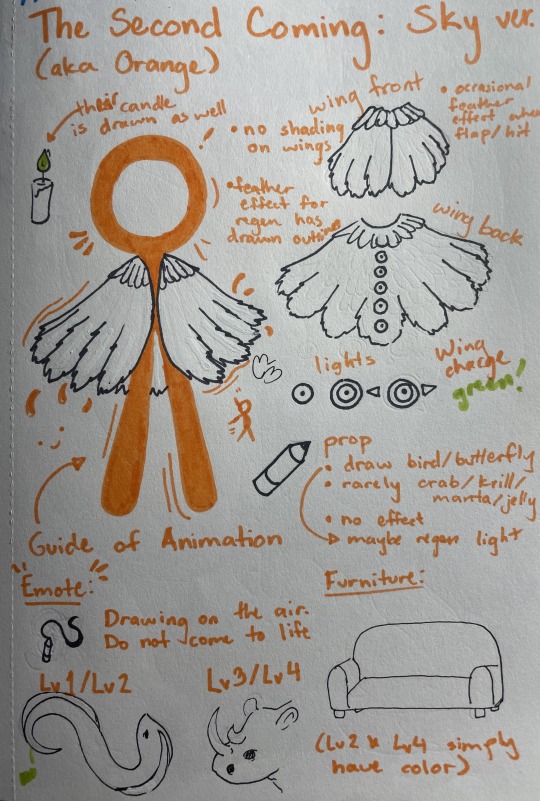 The Second Coming: Sky ver.
(aka Orange)
their candle
is drawn as well
wing front
• no shading
on wings
• ocasional
feather
effect when
flap/hit
• feather
effect for
regen has
drawn outline
wing back
lights
Wing
charge
green!
prop
• draw bird/butterfly
• rarely crab/krill/
manta/jelly
• no effect
maybe regen light
Guide of Animation
Emote:
Drawing on the air.
Do not come to life
Lv1/Lv2
Lv3/Lv4
Furniture:
(Lv2 & Lv4 simply
have color)